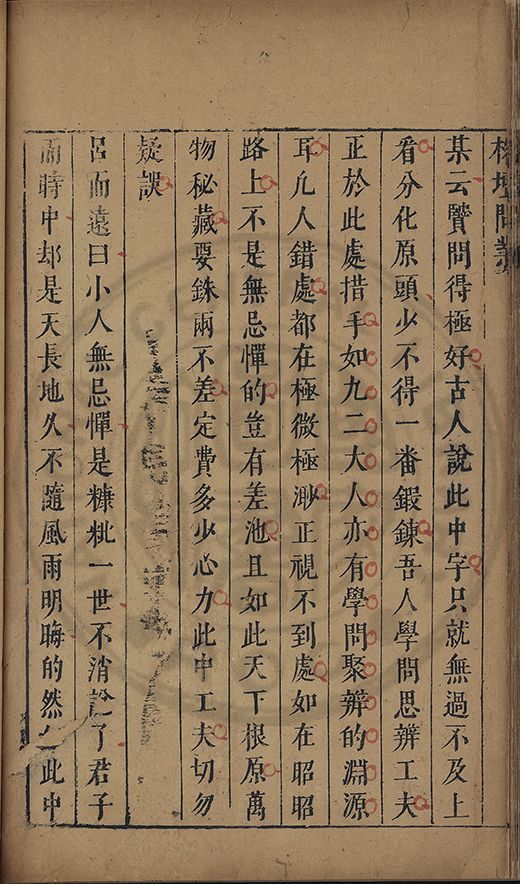 榕壇問業
某云贒問得極好古人說此中字只就無過不及上
看分化原頭少不得一番鍜鍊吾人學問思辨工夫
正於此處措手如九二大人亦有學問聚辨的淵源
耳凢人錯處都在極微極渺正視不到處如在昭昭
路上不是無忌憚的豈有差池且如此天下根原萬
物秘藏要銖兩不差定費多少心力此中工夫切勿
疑誤
呂而遠曰小人無忌憚是糠粃一世不消說了君子
而時中却是天長地久不隨風雨明晦的然此中